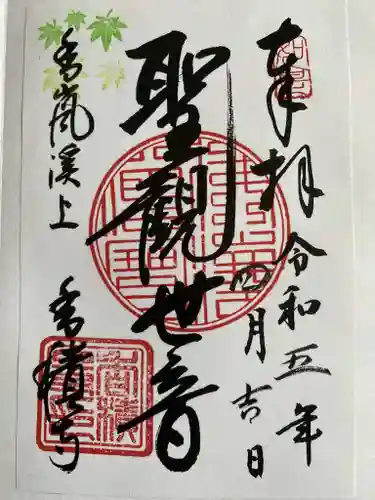 奉拝
令和五年
四月吉日
聖観世音
香嵐渓上
香積寺